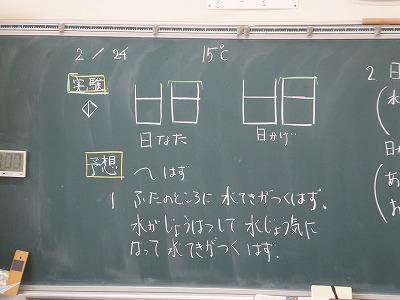 2/24 15℃
実験
日なた 日かげ
予想 〜はず
1 ふたのところに水てきがつくはず。
水がじょうはつして水じょう気に
なって水てきがつくはず.
2 日
水
日か
あ
お